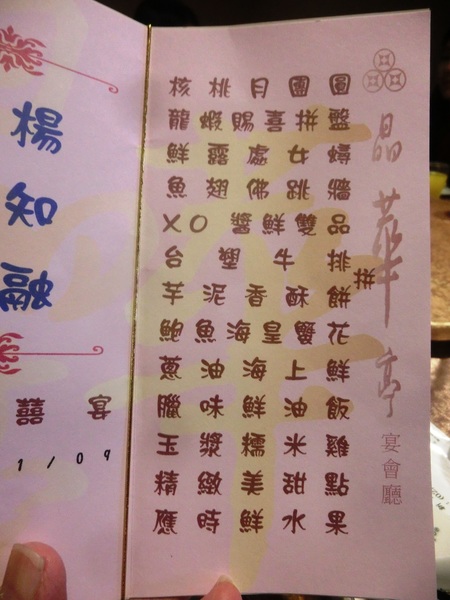 楊知融
囍宴
1/09
核桃月團圓
龍蝦賜喜拼盤
鮮露處女蟳
魚翅佛跳牆
XO醬鮮雙品
台塑牛排
拼
芋泥香酥餅
鮑魚海皇蟹花
蔥油海上鮮
臘味鮮油飯
玉漿糯米雞
精緻美甜點
應時鮮水果
晶華亭
宴會廳